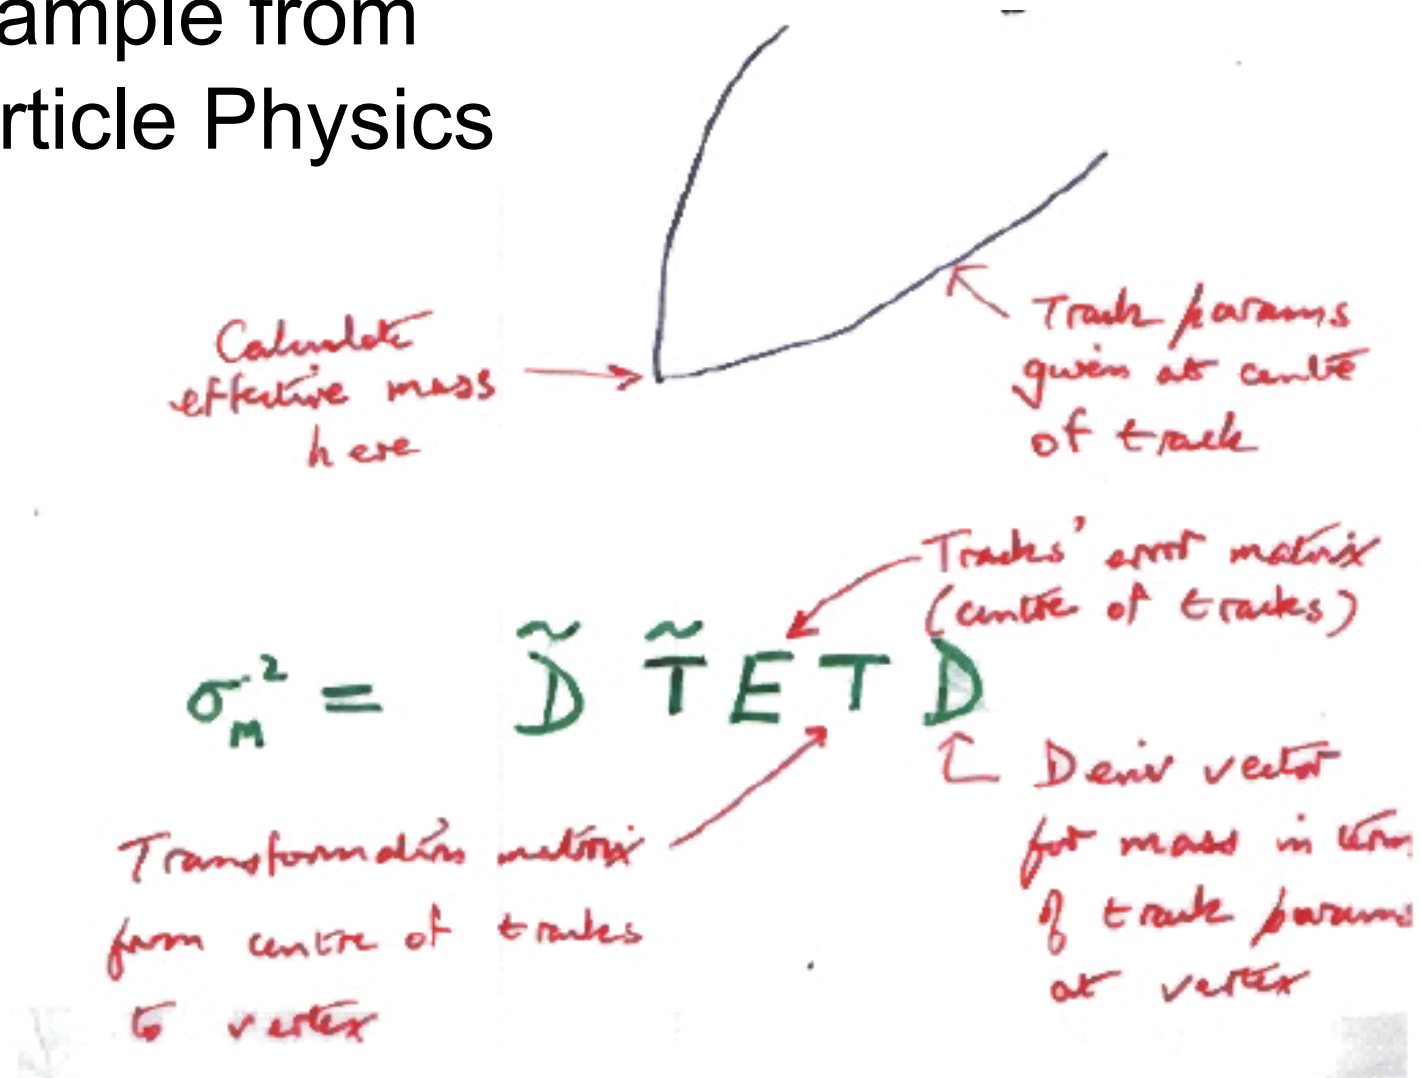 ample from
rticle Physics
Calculate
effective mass
here
Track params
given at centre
of track
Tracks' error matrix
(centre of tracks)
σ_M² = D̃ T̃ E T D
Transformation matrix
from centre of tracks
to vertex
Deriv vector
for mass in term
of track params
at vertex